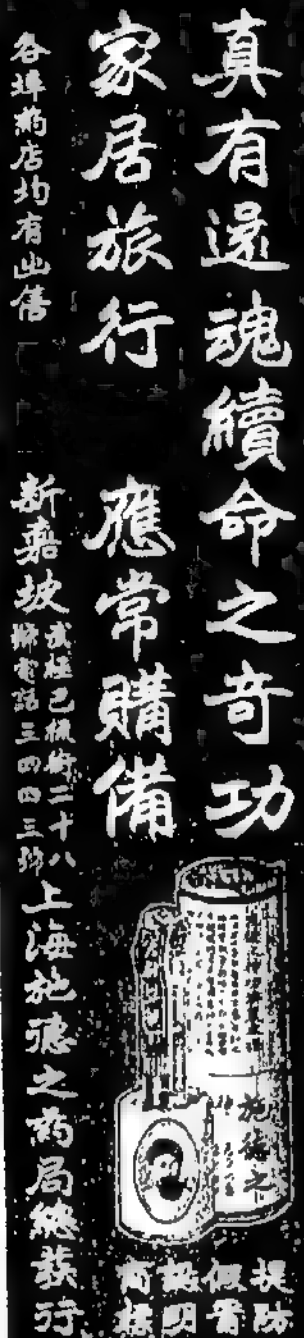 真有還魂續命之奇功
家居旅行 應常購備
各埠葯店均有出售
新嘉坡
街二十八
號電話三四四三號
上海施德之葯局總發行
施德之
提防
假冒
認明
商標